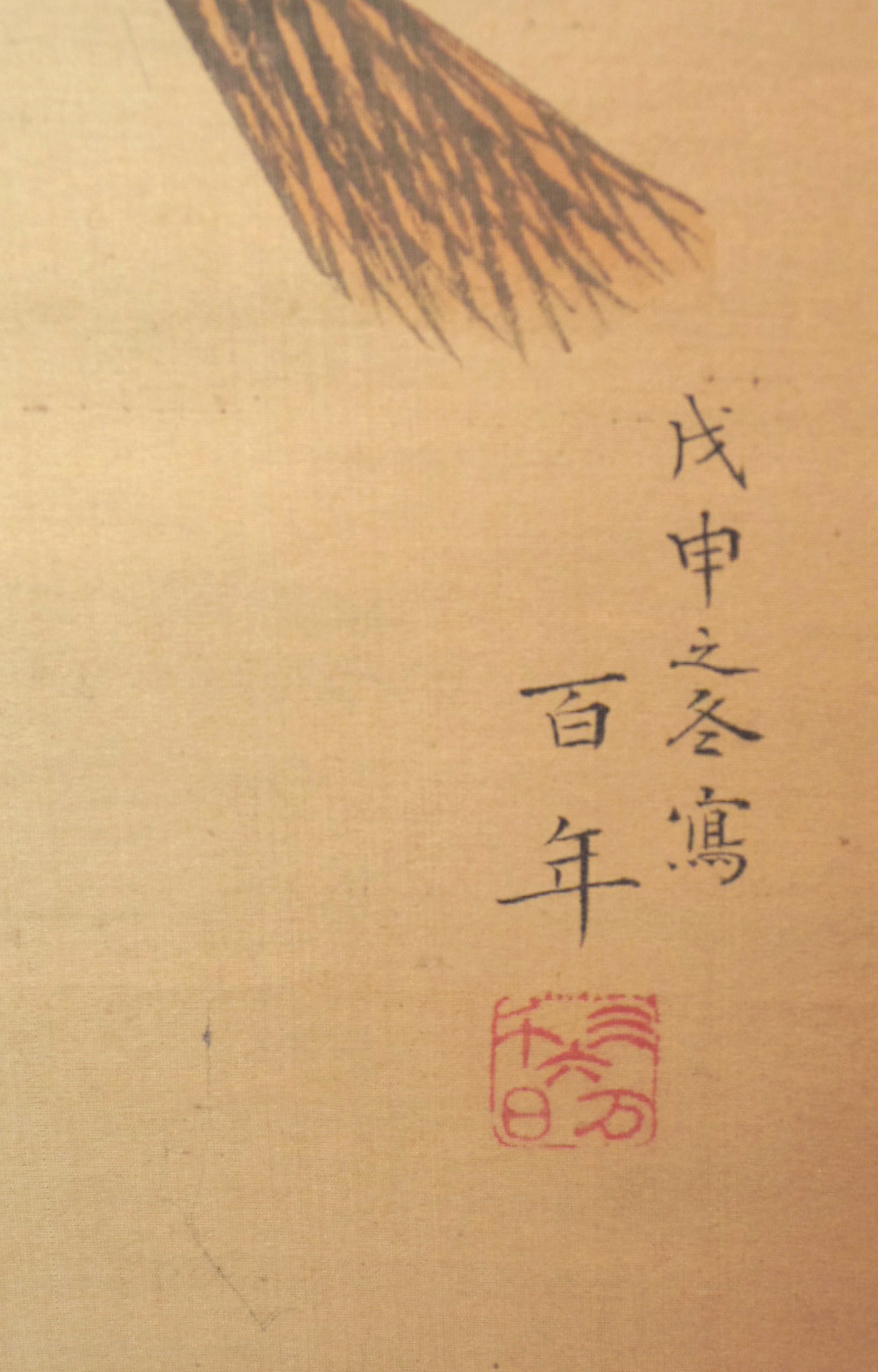 戊申之冬寫
百年
三万六千日